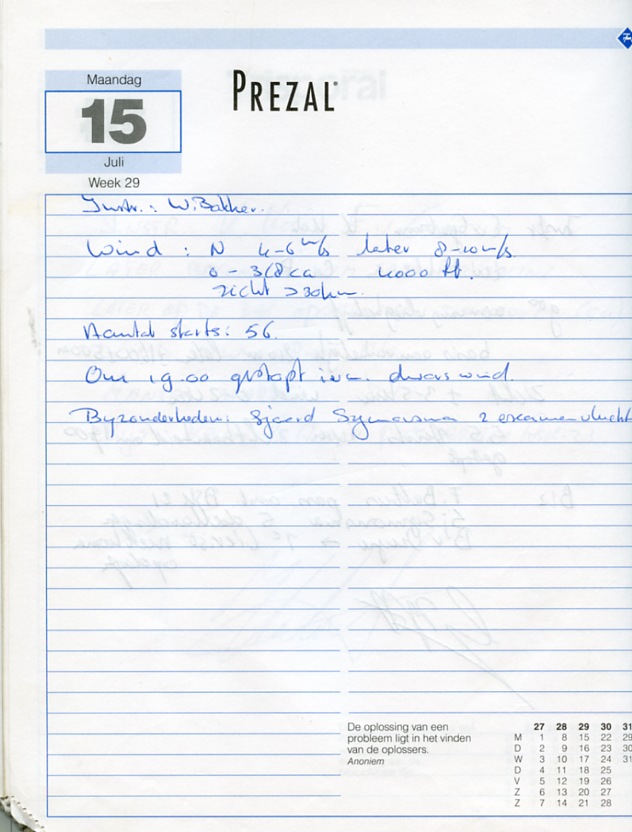 Maandag
PREZAL
15
Juli
Week 29
Instr.: W. Bakker.
Wind : N 4-6 m/s later 8-10 m/s
0 - 3/8 ca 4000 ft.
zicht >30km.
Aantal starts: 56.
Om 19.00 gestopt i.v.m. dwarswind.
Byzonderheden: Sjoerd 2 examenvlucht
De oplossing van een
probleem ligt in het vinden
van de oplossers.
Anoniem
27 28 29 30 31
M 1 8 15 22 29
D 2 9 16 23 30
W 3 10 17 24 31
D 4 11 18 25
V 5 12 19 26
Z 6 13 20 27
Z 7 14 21 28